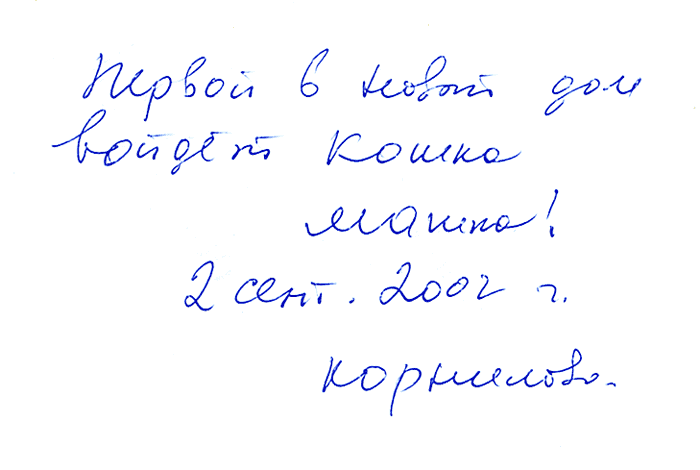 Первой в новый дом
войдёт кошка
Машка!
2 сент. 2002 г.
Корнилова.